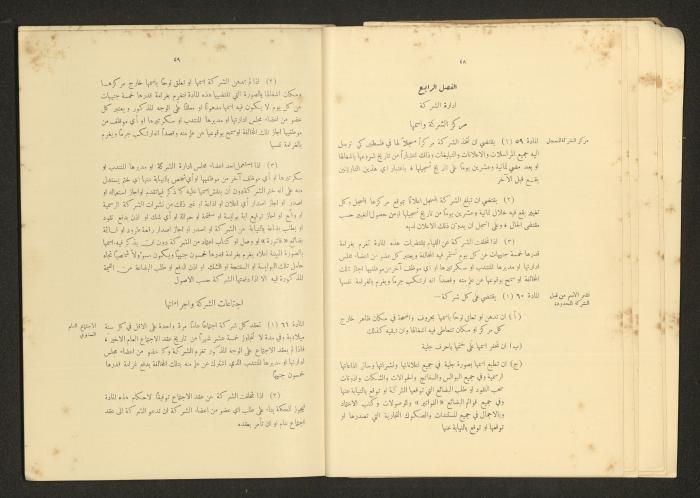 ٤٨
الفصل الرابع
ادارة الشركة
مركز الشركة واسمها
مركز الشركة المسجل
المادة ٥٩ (١) يقتضي ان تتخذ الشركة مركزاً مسجلاً لها في فلسطين كي ترسل
اليه جميع المراسلات والاعلانات والتبليغات وذلك اعتباراً من تاريخ شروعها باشغالها
او بعد مضي ثمانية وعشرين يوماً على تاريخ تسجيلها باعتبار اي هذين التاريخين
يقع قبل الآخر
(٢) يقتضي ان تبلغ الشركة المسجل اعلاناً بموقع مركزها المسجل وكل
تغيير يقع فيه خلال ثمانية وعشرين يوماً من تاريخ تسجيلها او من حصول التغيير حسب
مقتضى الحال وعلى المسجل ان يدون ذلك الاعلان لديه
(٣) اذا تخلفت الشركة عن القيام بمقتضيات هذه المادة تغرم بغرامة
قدرها خمسة جنيهات عن كل يوم تستمر فيه المخالفة ويعتبر كل عضو من اعضاء مجلس
ادارتها او مديرها المنتدب او سكرتيرها او اي موظف آخر من موظفيها اجاز تلك
المخالفة او سمح بوقوعها عن علم منه وقصداً انه ارتكب جرماً ويغرم بالغرامة نفسها
نشر الاسم من قبل
الشركة المحدودة
المادة ٦٠ (١) يقتضي على كل شركة —
(أ) ان تدهن او تعلق لوحاً باسمها بحروف واضحة في مكان ظاهر خارج
كل مركز او مكان تتعاطى فيه اشغالها وان تبقيه كذلك
(ب) ان تحفر اسمها على ختمها باحرف جلية
(ج) ان تطبع اسمها بصورة جلية في جميع اعلاناتها ونشراتها وسائر اذاعاتها
الرسمية وفي جميع البوالس والسفاتج والحوالات والشكات واذونات
سحب النقود او طلب البضائع التي توقعها الشركة او توقع بالنيابة عنها
وفي جميع قوائم البضائع «الفواتير» والوصولات وكتب الاعتماد
وبالاجمال في جميع المستندات والصكوك التجارية التي تصدرها او
توقعها او توقع بالنيابة عنها
٤٩
(٢) اذا لم تدهن الشركة اسمها او تعلق لوحاً باسمها خارج مركزها
ومكان اشغالها بالصورة التي تقتضيها هذه المادة فتغرم بغرامة قدرها خمسة جنيهات
عن كل يوم لا يكون فيه اسمها مدهوناً او معلقاً على الوجه المذكور ويعتبر كل
عضو من اعضاء مجلس ادارتها او مديرها المنتدب او سكرتيرها او اي موظف من
موظفيها اجاز تلك المخالفة او سمح بوقوعها عن علم منه وقصداً انه ارتكب جرماً ويغرم
بالغرامة نفسها
(٣) اذا استعمل احد اعضاء مجلس ادارة الشركة او مديرها المنتدب او
سكرتيرها او اي موظف آخر من موظفيها او أي شخص بالنيابة عنها اي ختم يستدل
منه على انه ختم الشركة دون ان ينقش اسمها عليه كما ذكر فيما تقدم او اجاز استعماله او
اصدر او اجاز اصدار أي اعلان او اذاعة او غير ذلك من نشرات الشركة الرسمية
او وقع او اجاز توقيع اية بوليسة او سفتجة او حوالة او أي شك او اذن بدفع نقود
او بطلب بضاعة بالنيابة عن الشركة او اصدر او اجاز اصدار رقعة مارود او لقائمة
بضائع «فاتورة» او وصل او كتاب اعتماد من الشركة دون ان يذكر فيه اسمها
بالصورة المبينة اعلاه يغرم بغرامة قدرها خمسون جنيهاً ويكون مسؤولاً شخصياً تجاه
حامل تلك البوليسة او السفتجة او الشك او اذن الدفع او طلب البضاعة عن القيمة
المذكورة فيه الا اذا دفعتها الشركة حسب الاصول
اجتماعات الشركة واجراءاتها
الاجتماع العام
السنوي
المادة ٦١ (١) تعقد كل شركة اجتماعاً عاماً مرة واحدة على الاقل في كل سنة
ميلادية وفي مدة لا تتجاوز خمسة عشر شهراً من تاريخ عقد الاجتماع العام الاخير،
فاذا لم يعقد الاجتماع على الوجه المذكور تغرم الشركة وكل عضو من اعضاء مجلس
ادارتها او مديرها المنتدب الذي اشترك عن علم منه بتلك المخالفة بدفع غرامة قدرها
خمسون جنيهاً
(٢) اذا تخلفت الشركة عن عقد الاجتماع توفيقاً لاحكام هذه المادة
فيجوز للمحكمة بناء على طلب اي عضو من اعضاء الشركة ان تدعو الشركة الى عقد
اجتماع عام او ان تأمر بعقده